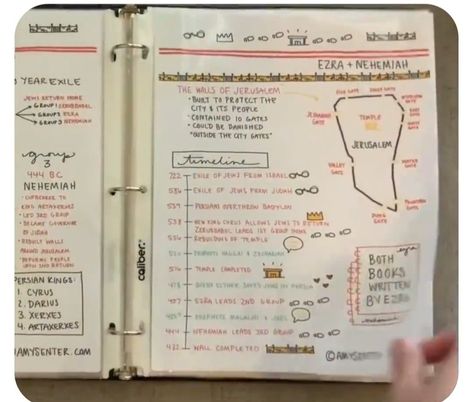 YEAR EXILE
JEWS RETURN HOME
GROUP 1 ZERUBBABEL
GROUP 2 EZRA
GROUP 3 NEHEMIAH
group
3
444 BC
NEHEMIAH
CUPBEARER TO
KING ARTAXERXES
LED 3RD GROUP
BECAME GOVERNOR
OF JUDAH
REBUILT WALLS
AROUND JERUSALEM
REFORMS PEOPLE
PERSIAN KINGS:
1. CYRUS
2. DARIUS
3. XERXES
4. ARTAXERXES
AMYSENTER.COM
caliber.
EZRA + NEHEMIAH
THE WALLS OF JERUSALEM
• BUILT TO PROTECT THE
CITY & ITS PEOPLE
• CONTAINED 10 GATES
• COULD BE BANISHED
"OUTSIDE THE CITY GATES"
FISH GATE
SHEEP GATE
GATE
TEMPLE
JERUSALEM
GATE
WATER GATE
VALLEY GATE
FOUNTAIN GATE
DUNG GATE
timeline
722 EXILE OF JEWS FROM ISRAEL
586 EXILE OF JEWS FROM JUDAH
539 PERSIANS OVERTHROW BABYLON
538 NEW KING CYRUS ALLOWS JEWS TO RETURN
ZERUBBABEL LEADS 1ST GROUP HOME
536 REBUILDING OF TEMPLE
PROPHETS HAGGAI & ZECHARIAH
516 TEMPLE COMPLETED
478 QUEEN ESTHER SAVES JEWS IN PERSIA
457 EZRA LEADS 2ND GROUP
PROPHETS MALACHI & JOEL
444 NEHEMIAH LEADS 3RD GROUP
432 WALL COMPLETED
ezra
BOTH
BOOKS
WRITTEN
BY EZRA
nehemiah
©AMYSENTER